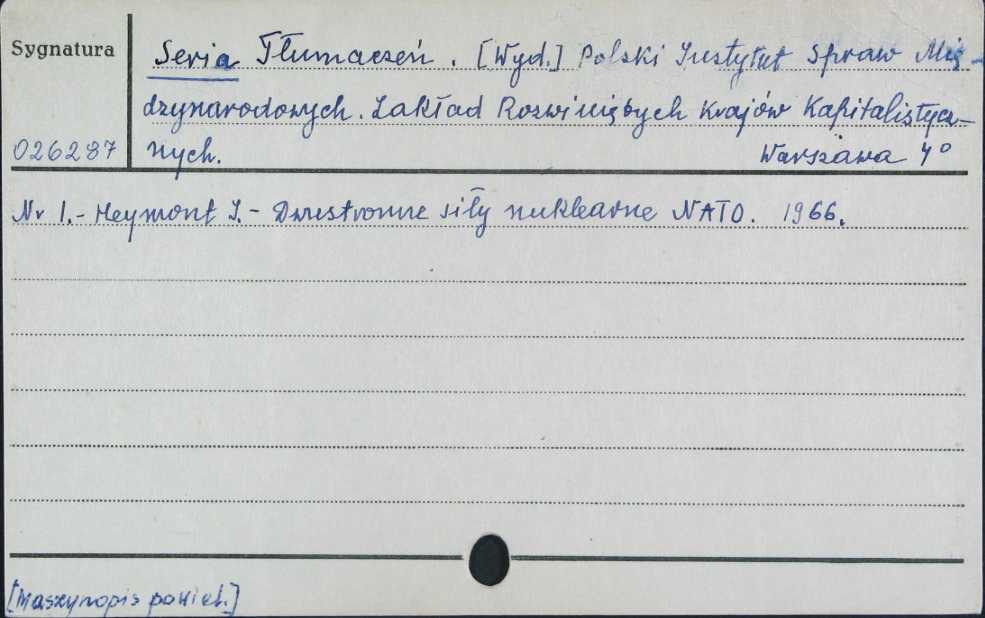 Sygnatura
Seria Tłumaczeń. [Wyd.] Polski Instytut Spraw Mię-
dzynarodowych. Zakład Rozwiniętych Krajów Kapitalistycz-
026287 nych. Warszawa 4°
Nr 1.- Heymont I.- Dwustronne siły nuklearne NATO. 1966.
[Maszynopis powiel.]